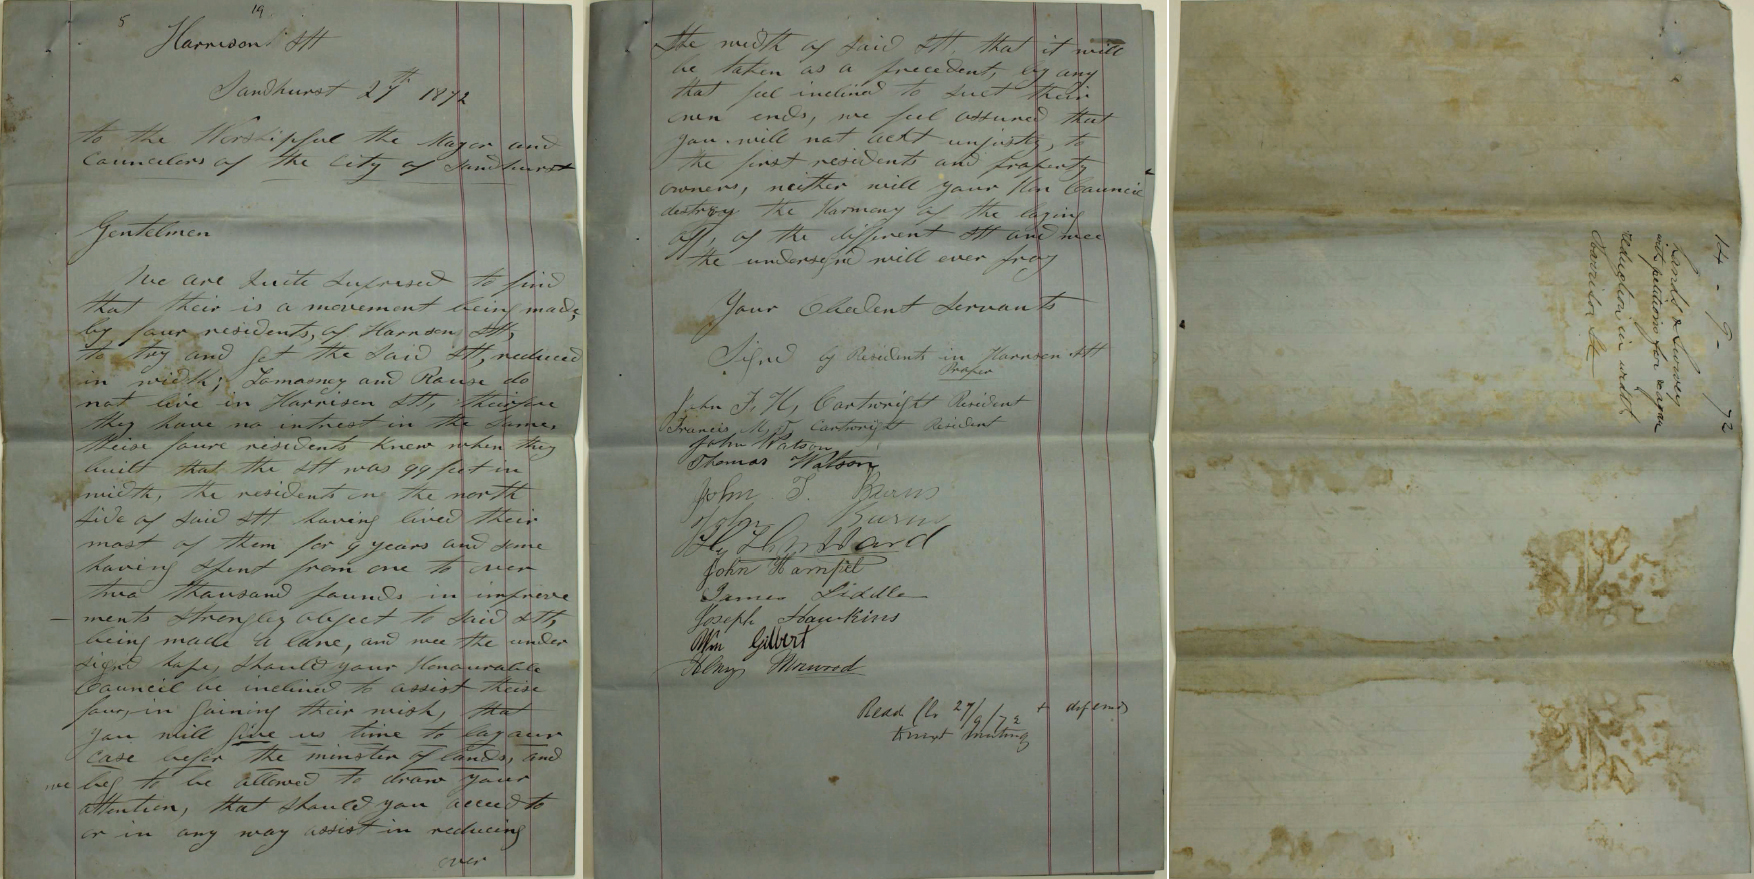 5 19
Harrison Stt
Sandhurst 27th 1872
to the Worshipful the Mayor and
Councelors of the City of Sandhurst
Gentelmen
We are quite suprised to find
that their is a movement being made,
by four residents, of Harrison Stt,
to try and get the said Stt, reduced
in width; Lamasney and Rause do
not live in Harrison Stt, theirfore
they have no intrest in the same,
theise foure residents knew when they
built that the Stt was 99 feet in
width, the residents one the north
side of said Stt having lived their
most of them for 9 years and some
having spent from one to over
two thousand pounds in improve
ments strongley object to said Stt,
being made a lane, and wee the under
signd hope, should your Honourable
Council be inclined to assist theise
four, in gaining their wish, that
you will give us time to lay our
case befor the minster of lands, and
we beg to be allowed to draw your
attention, that should you acceed to
or in any way assist in reducing
over
the width of said Stt, that it will
be taken as a precedent, by any
that feel inclined to suit their
own ends, we feel assured that
you will not ackt unjustly, to
the first residents and property
owners, neither will your Hon Council
destroy the Harmony of the laying
off, of the different Stt and wee
the undersignd will ever pray
Your Obedent Servants
Signd by Residents in Harrison Stt
Proper
John F. H. Cartwright Resident
Francis M. J. Cartwright Resident
John Watson
Thomas Watson
John T. Burns
John Burns
Hy
John Hampel
James Liddle
Joseph Hawkins
Wm Gilbert
Henry
Read Cl. 27/9/72 + defered
to next meeting
14 - 9 - 72
Lands & Survey
with petitions for &
reduction in width
Harrison St